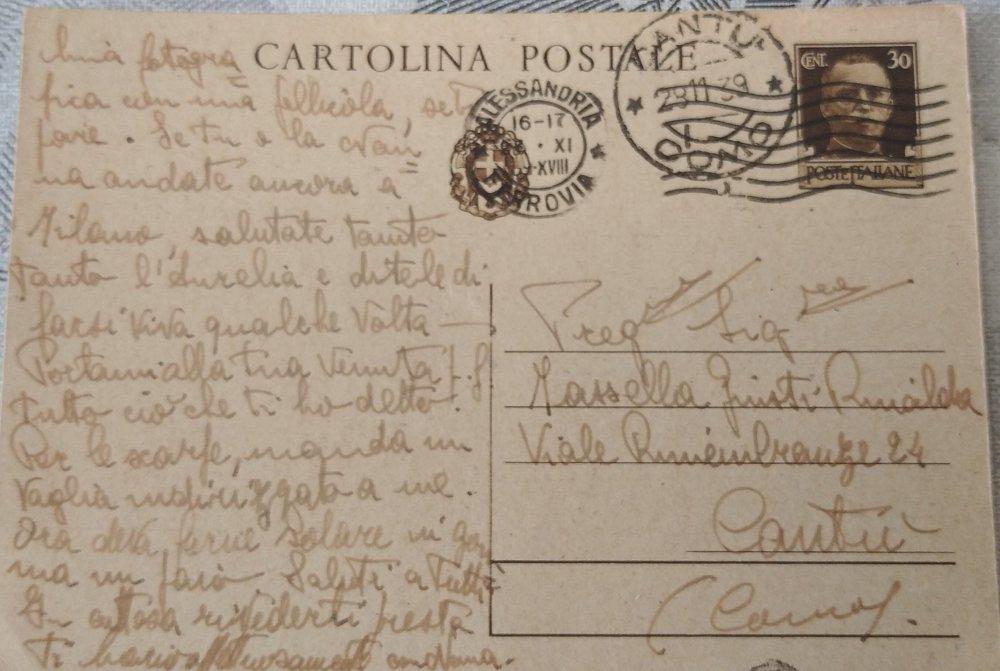 CARTOLINA POSTALE
CANTU'
28.11.39
COMO
ALESSANDRIA
16-17
XI
XVIII
FERROVIA
CENT. 30
POSTE ITALIANE
mia fotogra
fica con una pellicola, se
. Se tu e la
na andate ancora a
Milano, salutate tanto
tanto l'Aurelia e ditele di
farsi viva qualche volta —
Portami alla tua venuta
tutto ciò che ti ho detto.
Per le scarfe, manda un
vaglia indirizzato a me.
Ora devo farne solare in gom
ma un paio. Saluti a tutti
In attesa rivederti presto
Ti bacio affettuosamente
Preg Sig
Massella Giusti Rinalda
Viale Rimembranze 24
Cantù
(Como).